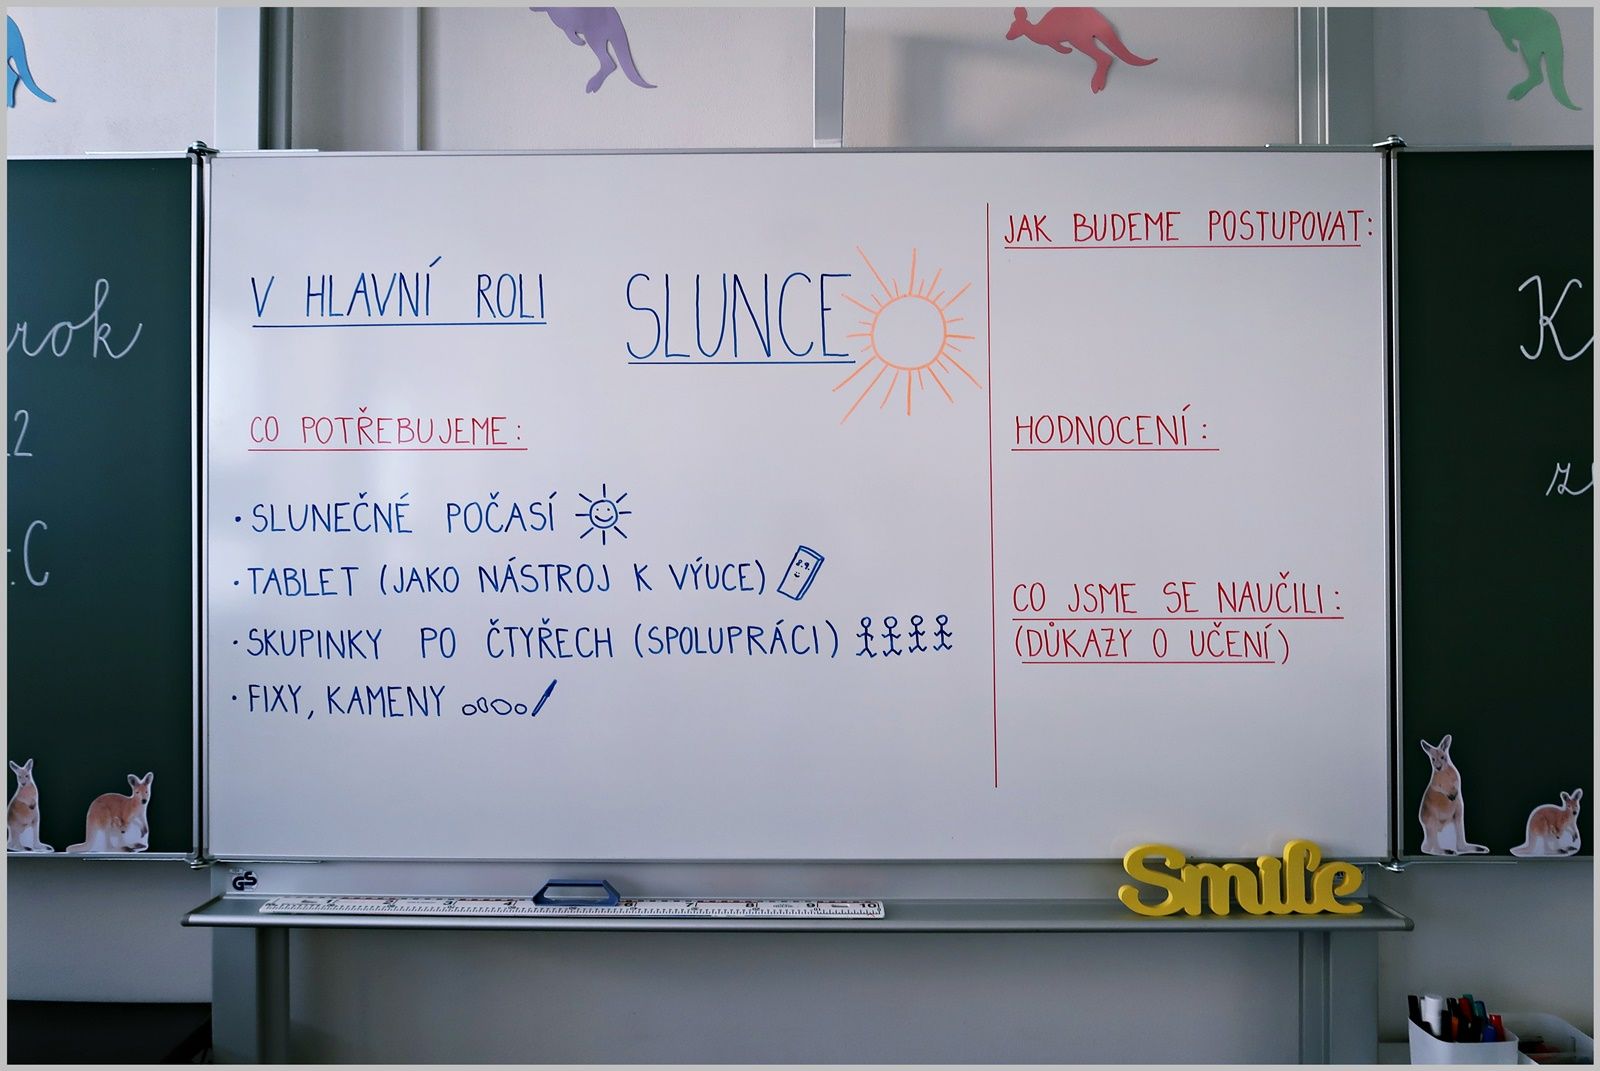 V HLAVNÍ ROLI SLUNCE
CO POTŘEBUJEME:
• SLUNEČNÉ POČASÍ
• TABLET (JAKO NÁSTROJ K VÝUCE)
• SKUPINKY PO ČTYŘECH (SPOLUPRÁCI)
• FIXY, KAMENY
JAK BUDEME POSTUPOVAT:
HODNOCENÍ:
CO JSME SE NAUČILI:
(DŮKAZY O UČENÍ)
rok
2
:C
K
z
GS
Smile